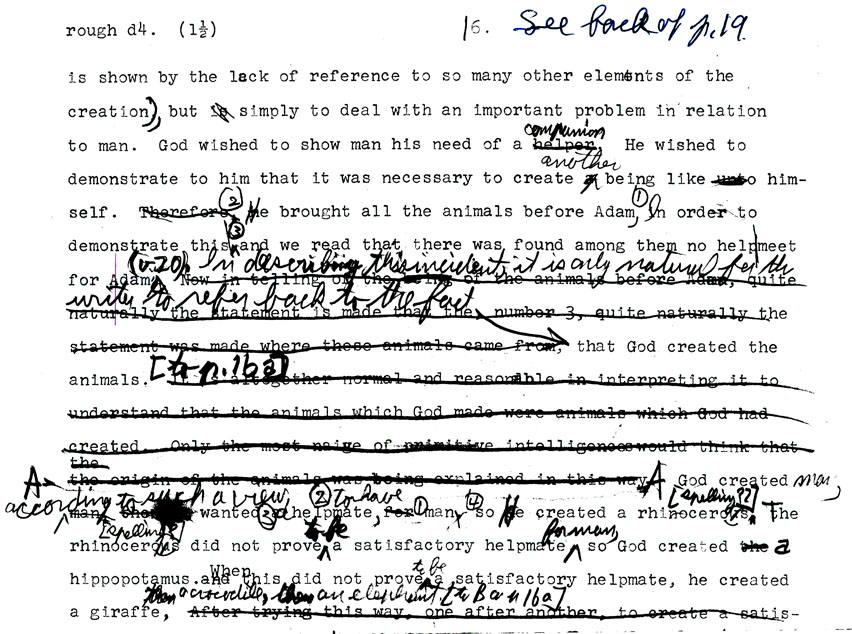 rough d4. (1½) 16. See back of p.19
is shown by the lack of reference to so many other elements of the
creation), but is simply to deal with an important problem in relation
companion
to man. God wished to show man his need of a helper. He wished to
another
demonstrate to him that it was necessary to create a being like unto him-
② ①
self. Therefore, He brought all the animals before Adam, In order to
③
demonstrate this and we read that there was found among them no helpmeet
(v.20). In describing this incident, it is only natural for the
for Adam. Now in telling of the being of the animals before Adam, quite
writer to refer back to the fact
naturally the statement is made that the number 3, quite naturally the
statement was made where these animals came from, that God created the
[to p.16a]
animals. It is altogether normal and reasonable in interpreting it to
understand that the animals which God made were animals which God had
created. Only the most naive of primitive intelligences would think that
the
the origin of the animals was being explained in this way. A God created man,
A according to such a view, ② to have [spelling??]
man wanted a helpmate, for ① man, so He created a rhinoceros. The
[spelling?] to be for man,
rhinoceros did not prove a satisfactory helpmate, so God created the a
When to be
hippopotamus. and this did not prove a satisfactory helpmate, he created
then a crocodile, then an elephant [to B on 16a]
a giraffe, After trying this way, one after another, to create a satis-